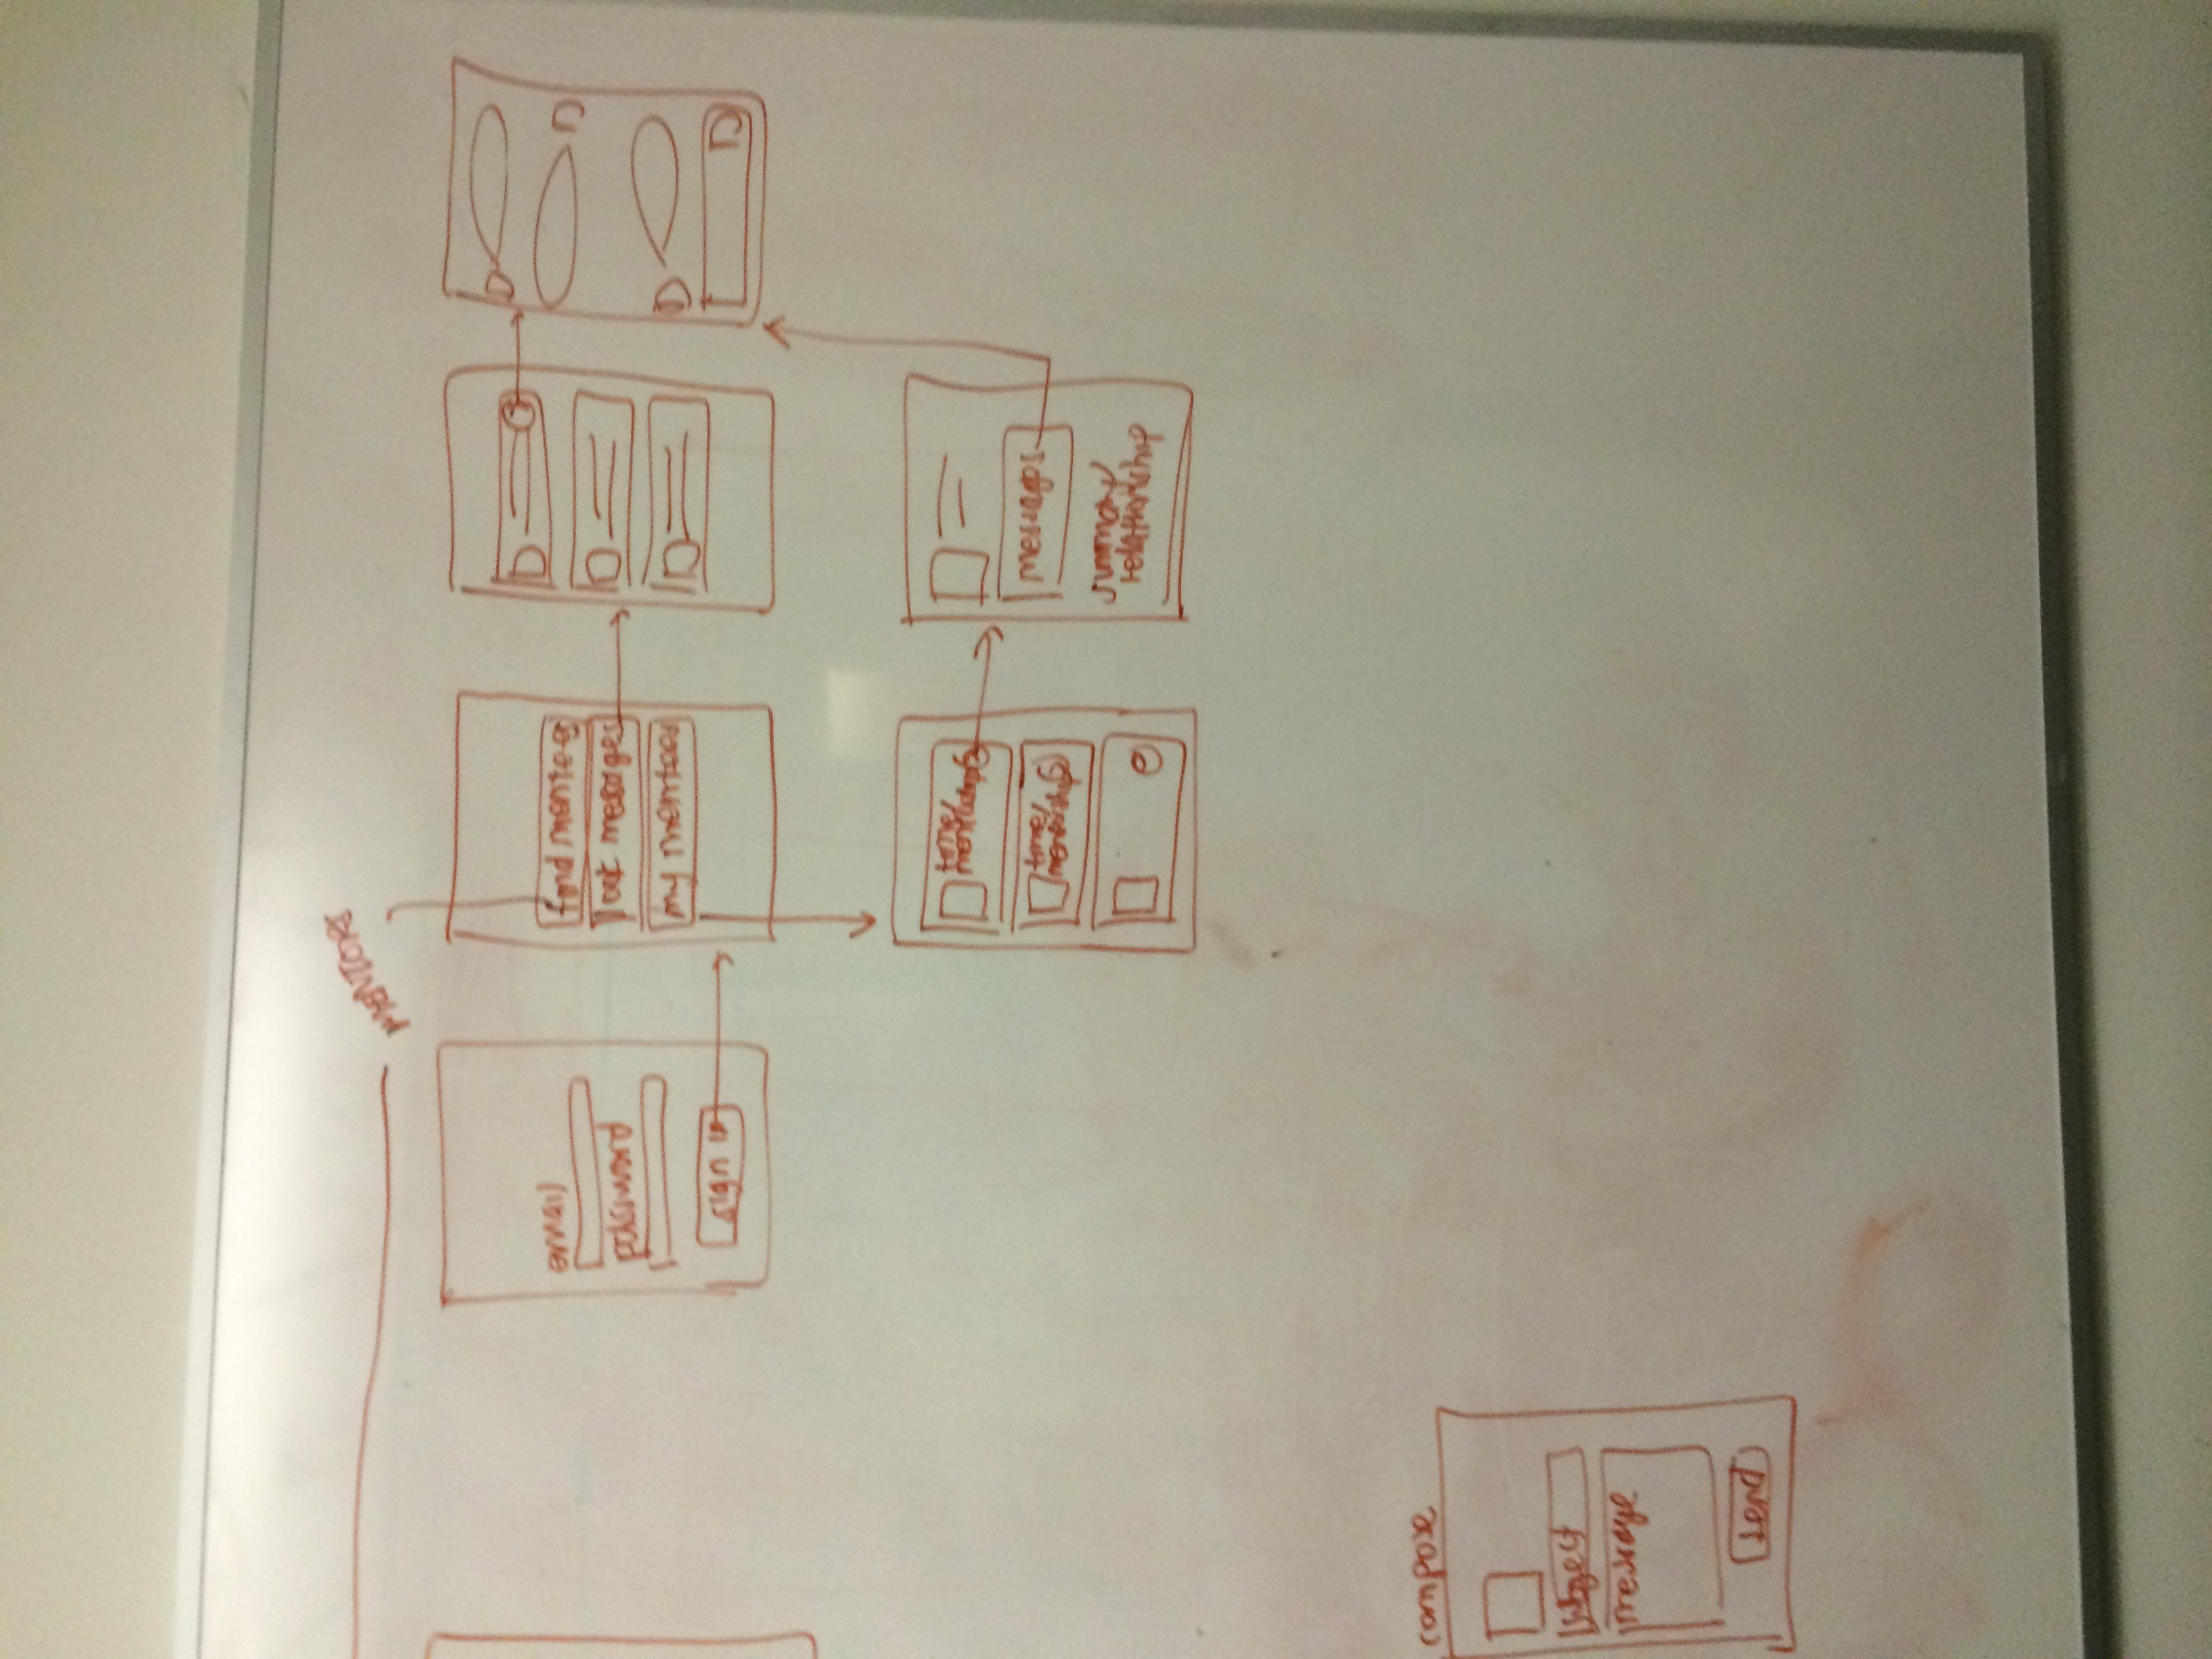 mentors
email
password
sign in
find mentees
look messages
my mentees
time/
mentorship
time/
mentorship
messages
summary
relationship
compose
subject
message
send